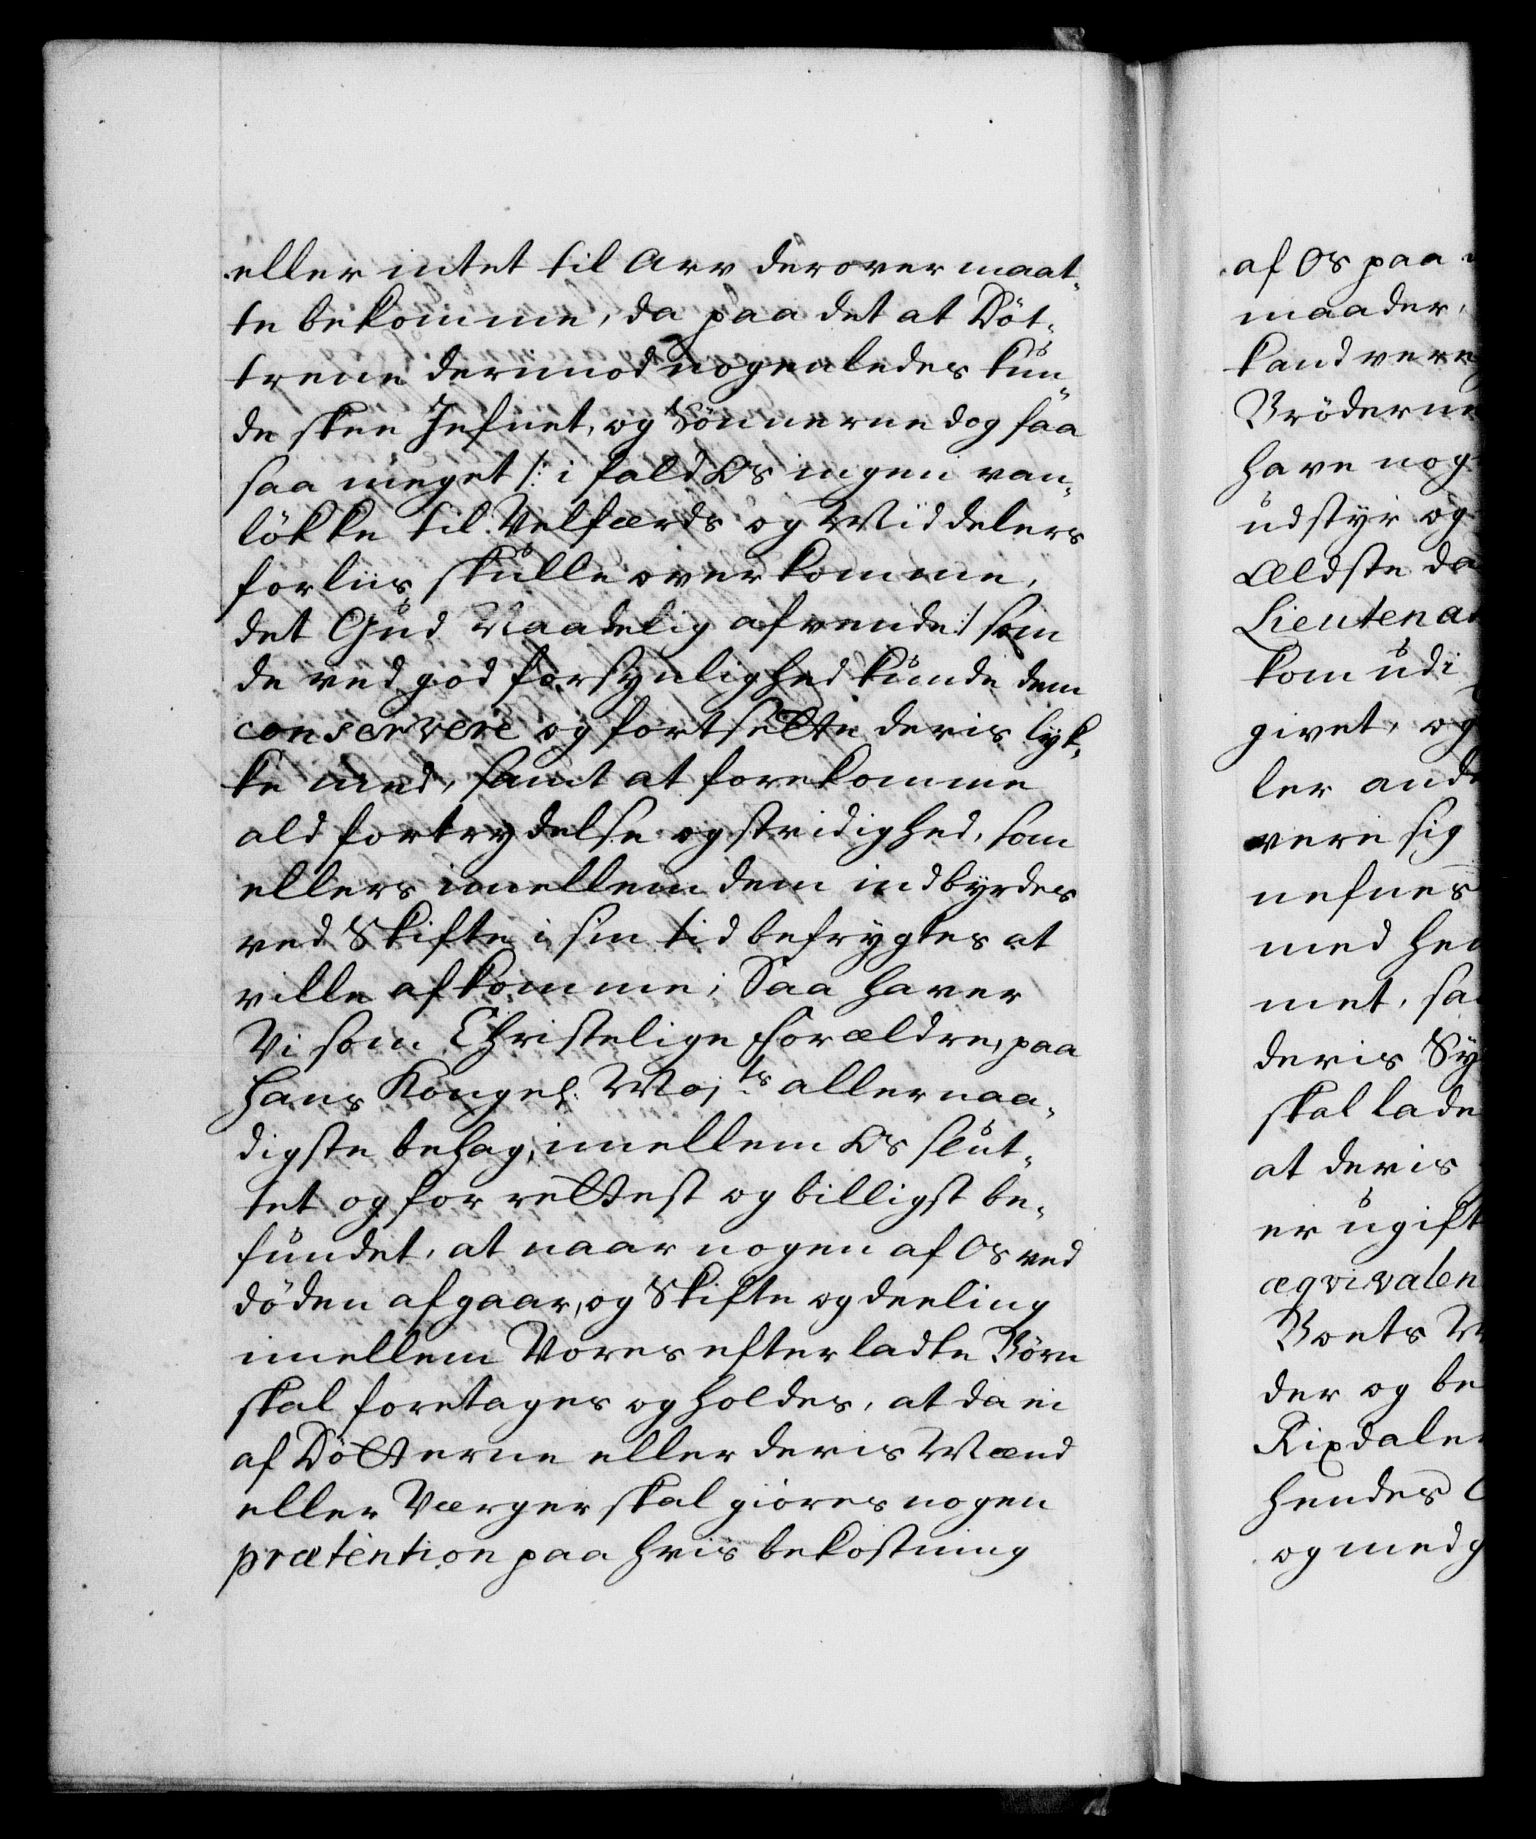 eller intet til Arv derover maat-
te bekomme, da paa det at Döt-
trene derimod nogenledes kun-
de skee Jefnet, og Sönnerne dog faa
saa meget /: i fald Os ingen van-
lökke til Velfærds og Middelers
forliis skulle overkomme,
det Gud Naadelig afvende :/ som
de ved god forsynlighed kunde dem
conservere og fortsette deris lyk-
ke med, samt at forekomme
ald fortrydelse og stridighed, som
ellers imellem dem indbyrdes
ved Skifte i sin tid befrygtes at
ville afkomme; Saa haver
Vi som Christelige Forældre, paa
Hans Kongel: May:ts allernaa-
digste behag, imellem Os slut-
tet og for rettest og billigst be-
fundet, at naar nogen af Os ved
döden afgaar, og Skifte og deeling
imellem Vores efterladte Börn
skal foretages og holdes, at da ei
af Dötterne eller deris Mænd
eller Værger skal giöres nogen
prætention paa hvis bekostning
af Os paa
maader,
kand vere
Bröderne
have nog
udstyr og
Ældste da
Lieutenan
kom udi
givet, og
ler and
vere sig
nefnes
med hen
met, sa
deris Sy
skal lade
at deris
er ugift
æqvivalen
Boets M
der og be
Rixdaler
hendes
og med g